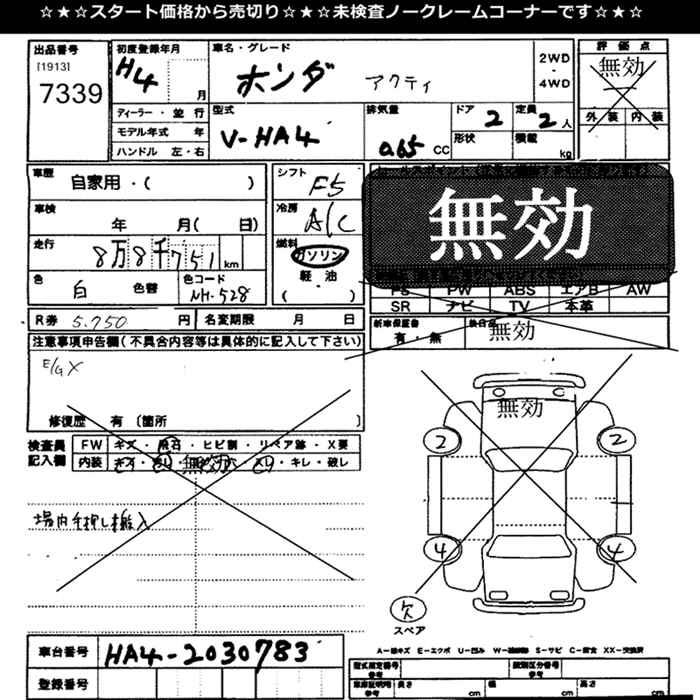 ☆★☆スタート価格から売切り☆★☆未検査ノークレームコーナーです☆★☆
出品番号
[1913]
7339
初度登録年月
H4
月
車名・グレード
ホンダ アクティ
2WD
・
4WD
評価点
無効
外装 内装
ディーラー・並行
モデル年式 年
ハンドル 左・右
型式
V-HA4
排気量
0.65 CC
ドア
2
定員
2人
形状
積載
kg
車歴
自家用・( )
車検
年 月( 日)
走行
8万8千751km
色
白
色替
色コード
NH-528
シフト
F5
冷房
A/C
燃料
ガソリン
軽・油
( )
無効
PS PW ABS エアB AW
SR ナビ TV 本革
R券 5.750 円
名変期限 月 日
新車保証書
有・無
後日
無効
注意事項申告欄(不具合内容等は具体的に記入して下さい)
E/G X
修復歴 有 〔箇所 〕
検査員
記入欄
FW キズ・飛石・ヒビ割・リペア跡・X要
内装 キズ・ 無効 ・スレ・キレ・破レ
場内手押し搬入
無効
2
2
4
4
欠
スペア
車台番号
HA4-2030783
登録番号
A-線キズ E-エクボ U-凹み W-補修跡 S-サビ C-腐食 XX-交換済
型式指定番号
参考
類別区分番号
参考
車庫証明用
参考
長さ
cm
幅
cm
高さ
cm